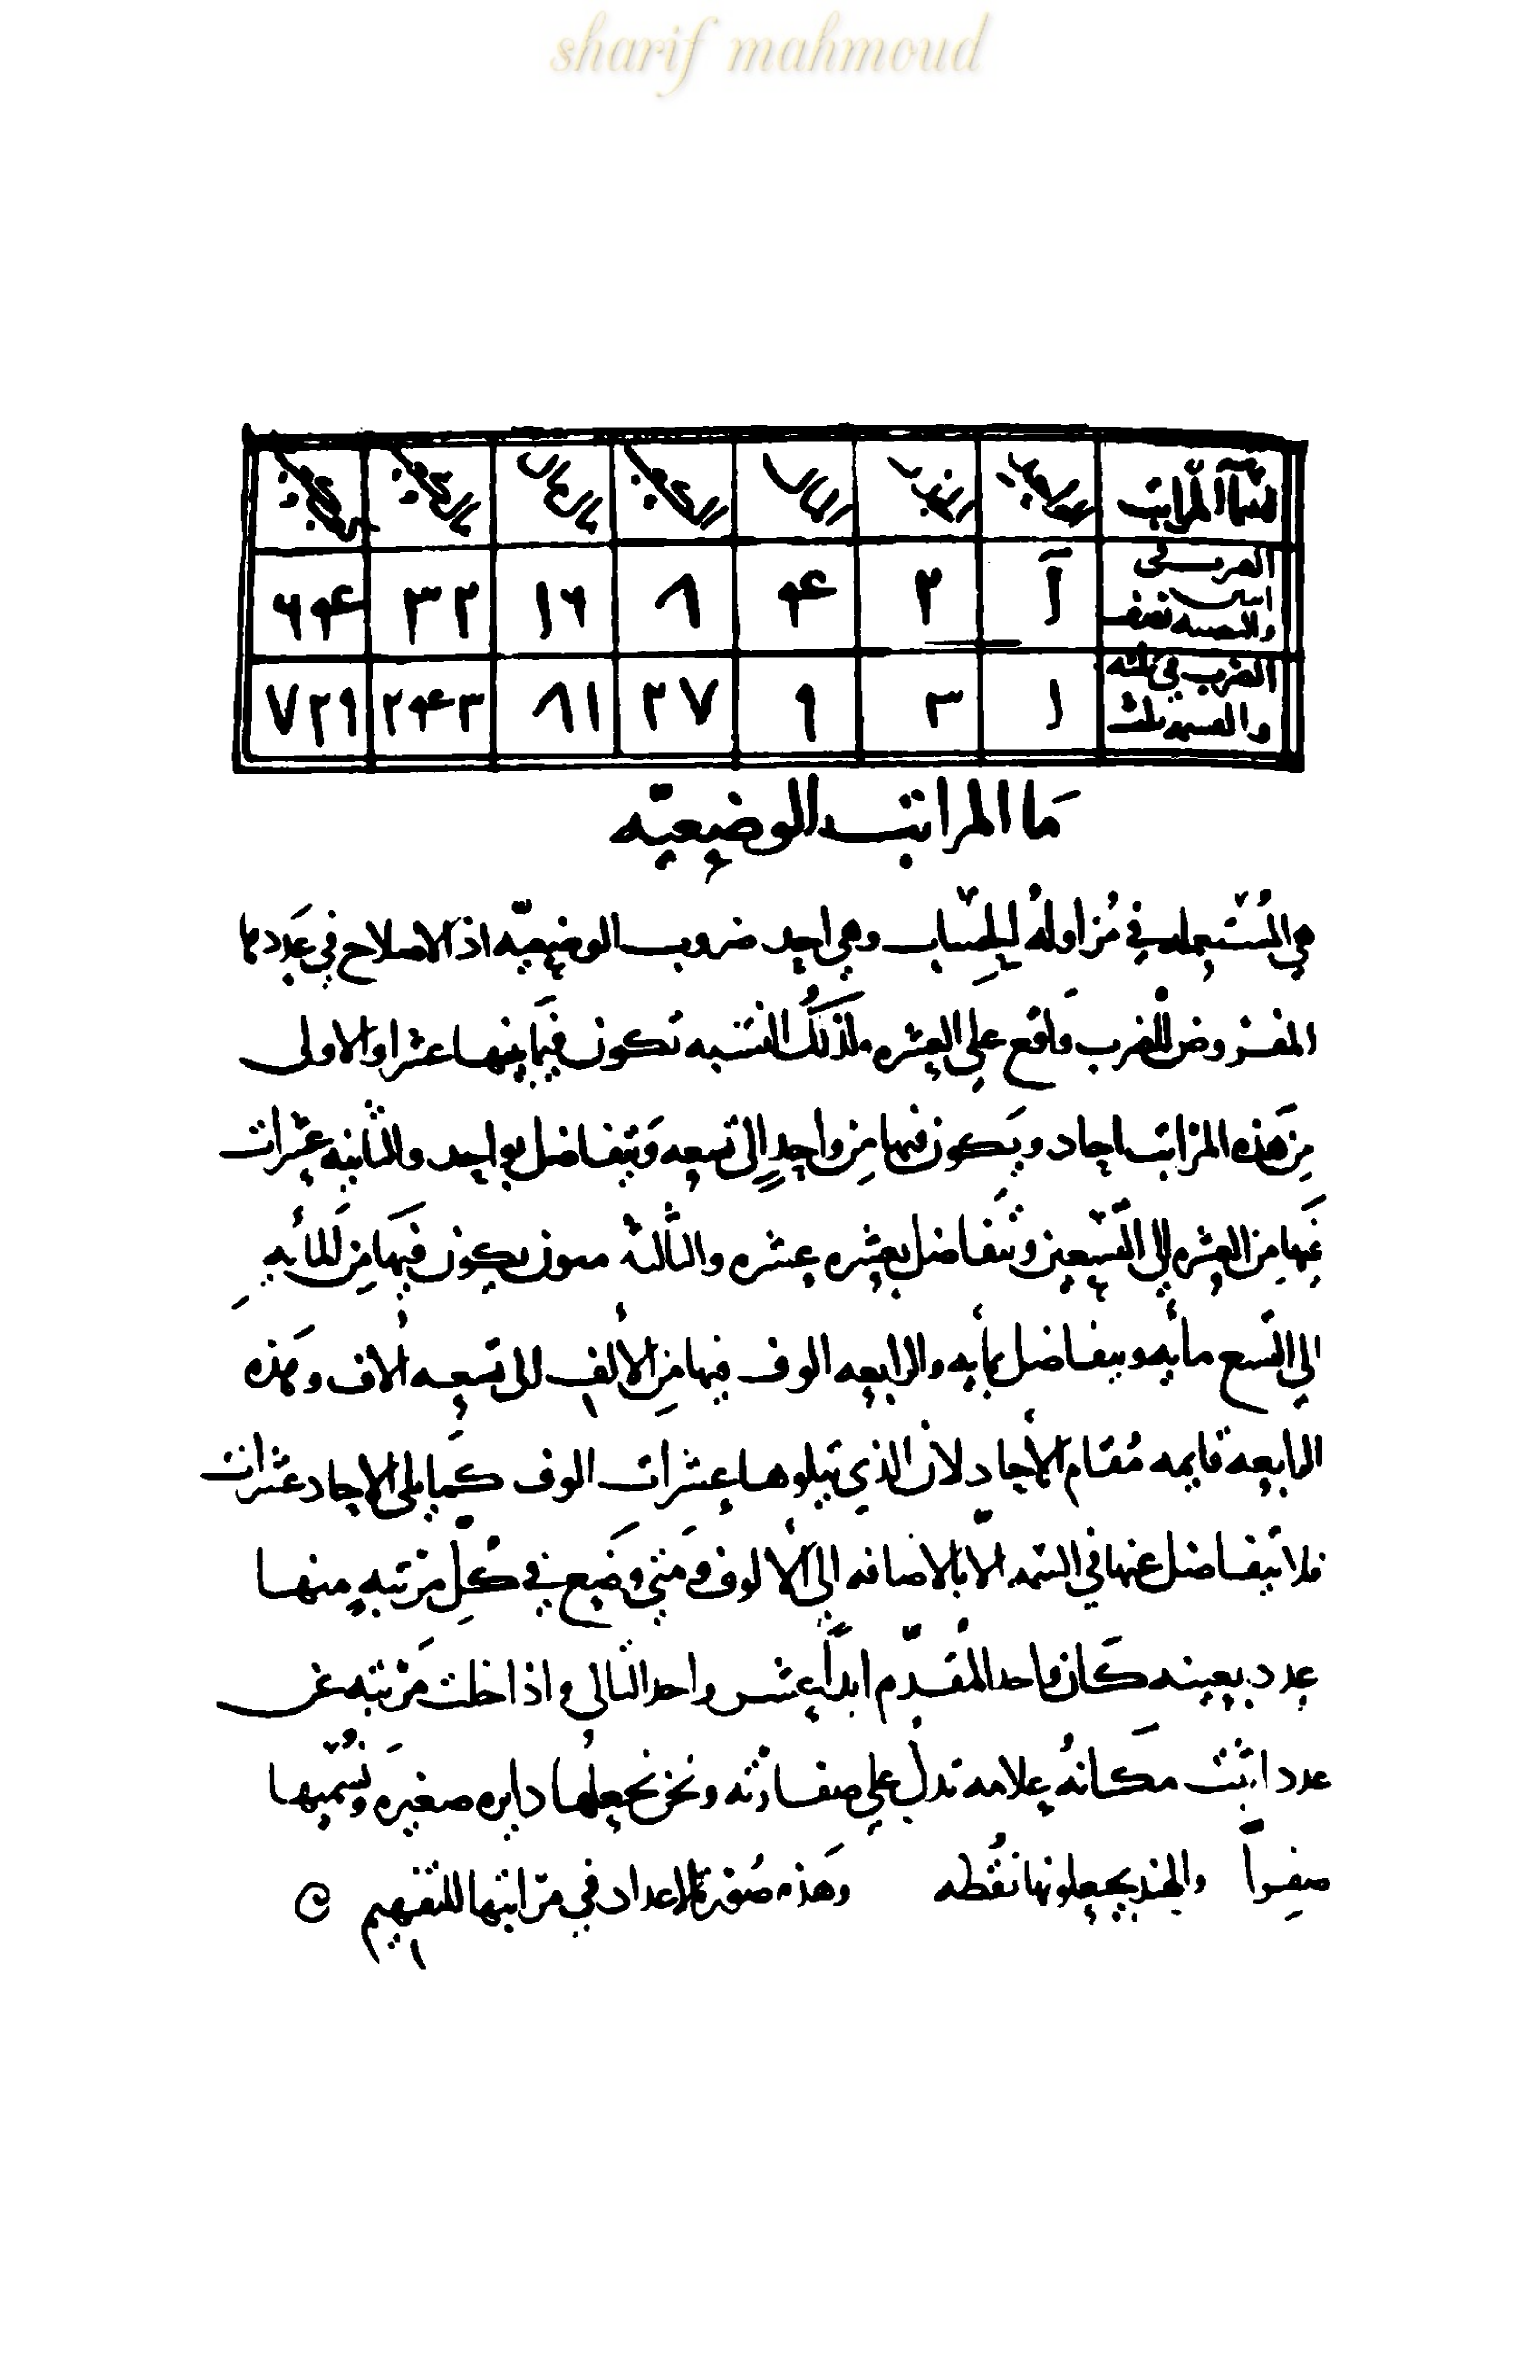 sharif mahmoud
اسماء المراتب
الضرب في اثنين والقسمة نصف ١ ٢ ۴ ٨ ١٦ ٣٢ ٦۴
الضرب في ثلثه والقسمه ثلث ١ ٣ ٩ ٢٧ ٨١ ٢۴٣ ٧٢٩
مَا المراتب الوضيعيّه
هي المُستعمله في مُزاولهُ الحِسّاب وهي احد ضروب الوضيعيّه اذ الاصلاح في عَددها
المفروض للضرب وَاقع على العشره فلذلكَ النسبه تكون فيَما بينها عشرا والاولى
مِن هَذه المراتب احاد ويَكون فيها مِن واحدٍ الى تسعه وَتتفاضل بواحد والثانيه عشرات
فيها مِن العشره إلى التّسعين وتتَفاضل بعشره عشره والثالثه مئون يكون فيَها مِن المأيهِ
الى التسع مأيه ويتفاضل بمأيه والرابعه الوف فيها مِن الأُلف الى تسعه ألاف وهَذه
الرابعه قايمه مُقام الأُحاد لان الذي يتلوها عشرات الوف كما يلى الاحاد عشرات
فلا تتفاضل عنها في السّمه الّا بالاضافه الى الأُلوف وَمَتى وَضع في كُلّ مَرتبهٍ منها
عدد بعينه كَان واحد المُقدّم ابداً عشر واحد التالى واذا خلت مَرْتبه عن
عدد اثبت مَكانهُ علامه تدل على صفارته ونحن نجعلُها دايره صغيرَه ونُسّميها
صِفراً والهند يجعلونها نقُطه وَهَذه صُورة الاعداد في مرّاتبها للتفهيم